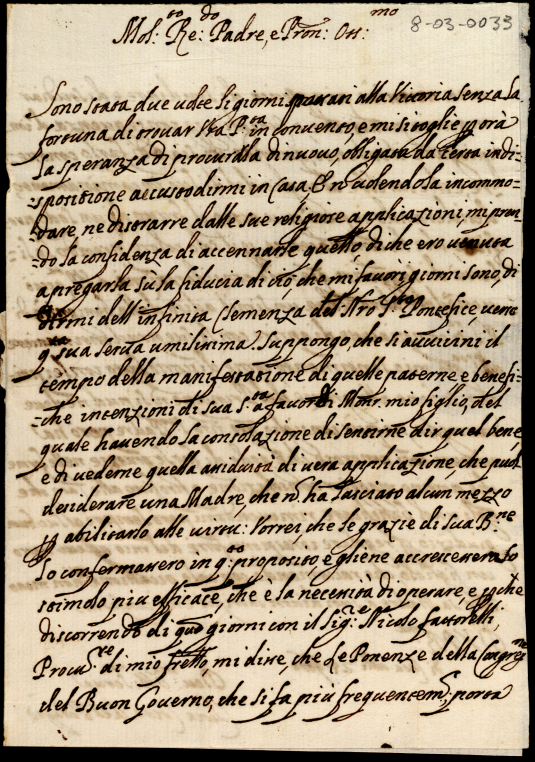 8-03-0033
Mol.to Re:do Padre, e Pron: Oss:mo
Sono stata due volte li giorni passati alla Vittoria senza la
fortuna di trovar V.ra P.tà in convento, e mi si toglie p ora
la speranza di procurarla di nuovo, obligata da certa indi-
-sposizione a custodirmi in Casa. E nõ volendo la incommo-
-dare, ne distrarre dalle sue religiose applicazioni, mi pren-
-do la confidenza di accennarle quello, di che ero venuta
a pregarla sù la fiducia di ciò, che mi favorì giorni sono, di
dirmi dell'infinita Clemenza del Nro S. Pontefice, verso
q.ta sua serva umilissima. Suppongo, che si avvicini il
tempo della manifestatione di quelle paterne e benefi-
-che intenzioni di sua S.tà a favore di Monr. mio figlio, del
quale havendo la consolazione di sentirne dir quel bene,
e di vederne quella assiduità di vera applicazione, che può
desiderare una Madre, che nõ ha lasciato alcun mezzo
p abilitarlo alle virtù: Vorrei, che le grazie di sua B.ne
lo confermassero in q.to proposito, e gliene accrescessero lo
stimolo più efficace, che è la necessità di operare, e p che
discorrendo di giorni con il Sig.re Nicolo Fattorelli,
Procu.re di mio fratello, mi disse, che le Ponenze della Congreg.ne
del Buon Governo, che si fa più frequentem.e, porta